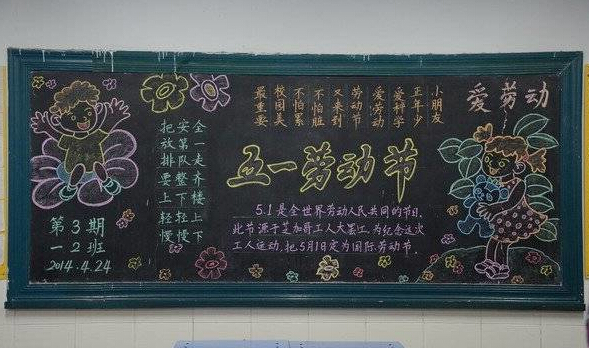 爱劳动
小朋友
正年少
爱科学
爱劳动
劳动节
又来到
不怕脏
不怕累
校园美
最重要
把安全
放第一
排队走
要整齐
上下楼
轻轻上
慢慢下
五一劳动节
5.1是全世界劳动人民共同的节日.
此节源于芝加哥工人大罢工,为纪念这次
工人运动,把5月1日定为国际劳动节.
第3期
一2班
2014.4.24